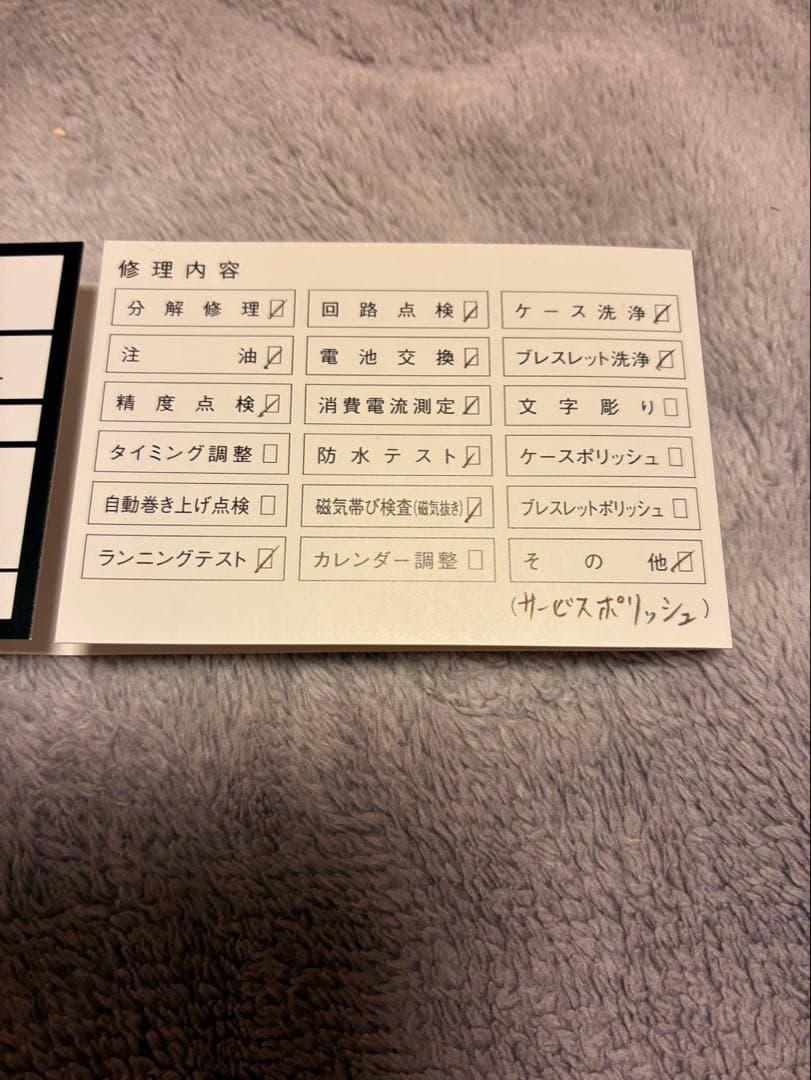 修理内容
分解修理☑ 回路点検☑ ケース洗浄☑
注油☑ 電池交換☑ ブレスレット洗浄☑
精度点検☑ 消費電流測定☑ 文字彫り☐
タイミング調整☐ 防水テスト☑ ケースポリッシュ☐
自動巻き上げ点検☐ 磁気帯び検査(磁気抜き)☑ ブレスレットポリッシュ☐
ランニングテスト☑ カレンダー調整☐ その他☑
(サービスポリッシュ)